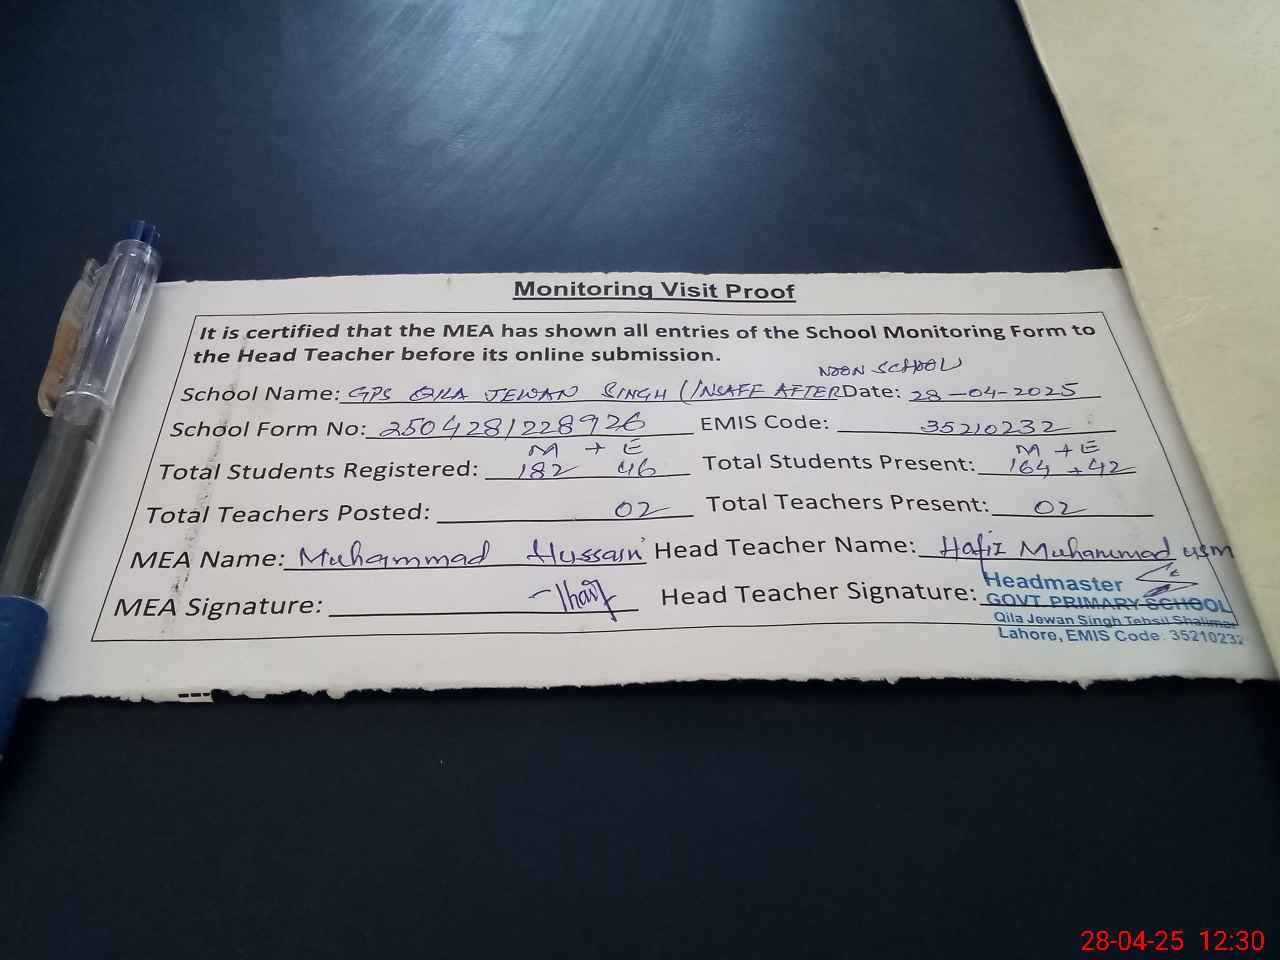 Monitoring Visit Proof
It is certified that the MEA has shown all entries of the School Monitoring Form to
the Head Teacher before its online submission.
NOON SCHOOL
School Name: GPS QILA JEWAN SINGH (INSAFF AFTER Date: 28-04-2025
School Form No: 2504281228926 EMIS Code: 35210232
M + E M + E
Total Students Registered: 182 46 Total Students Present: 164 + 42
Total Teachers Posted: 02 Total Teachers Present: 02
MEA Name: Muhammad Hussain Head Teacher Name: Hafiz Muhammad usm
MEA Signature: Head Teacher Signature:
Headmaster
GOVT PRIMARY SCHOOL
Qila Jewan Singh Tehsil Shalimar
Lahore, EMIS Code: 35210232
28-04-25 12:30